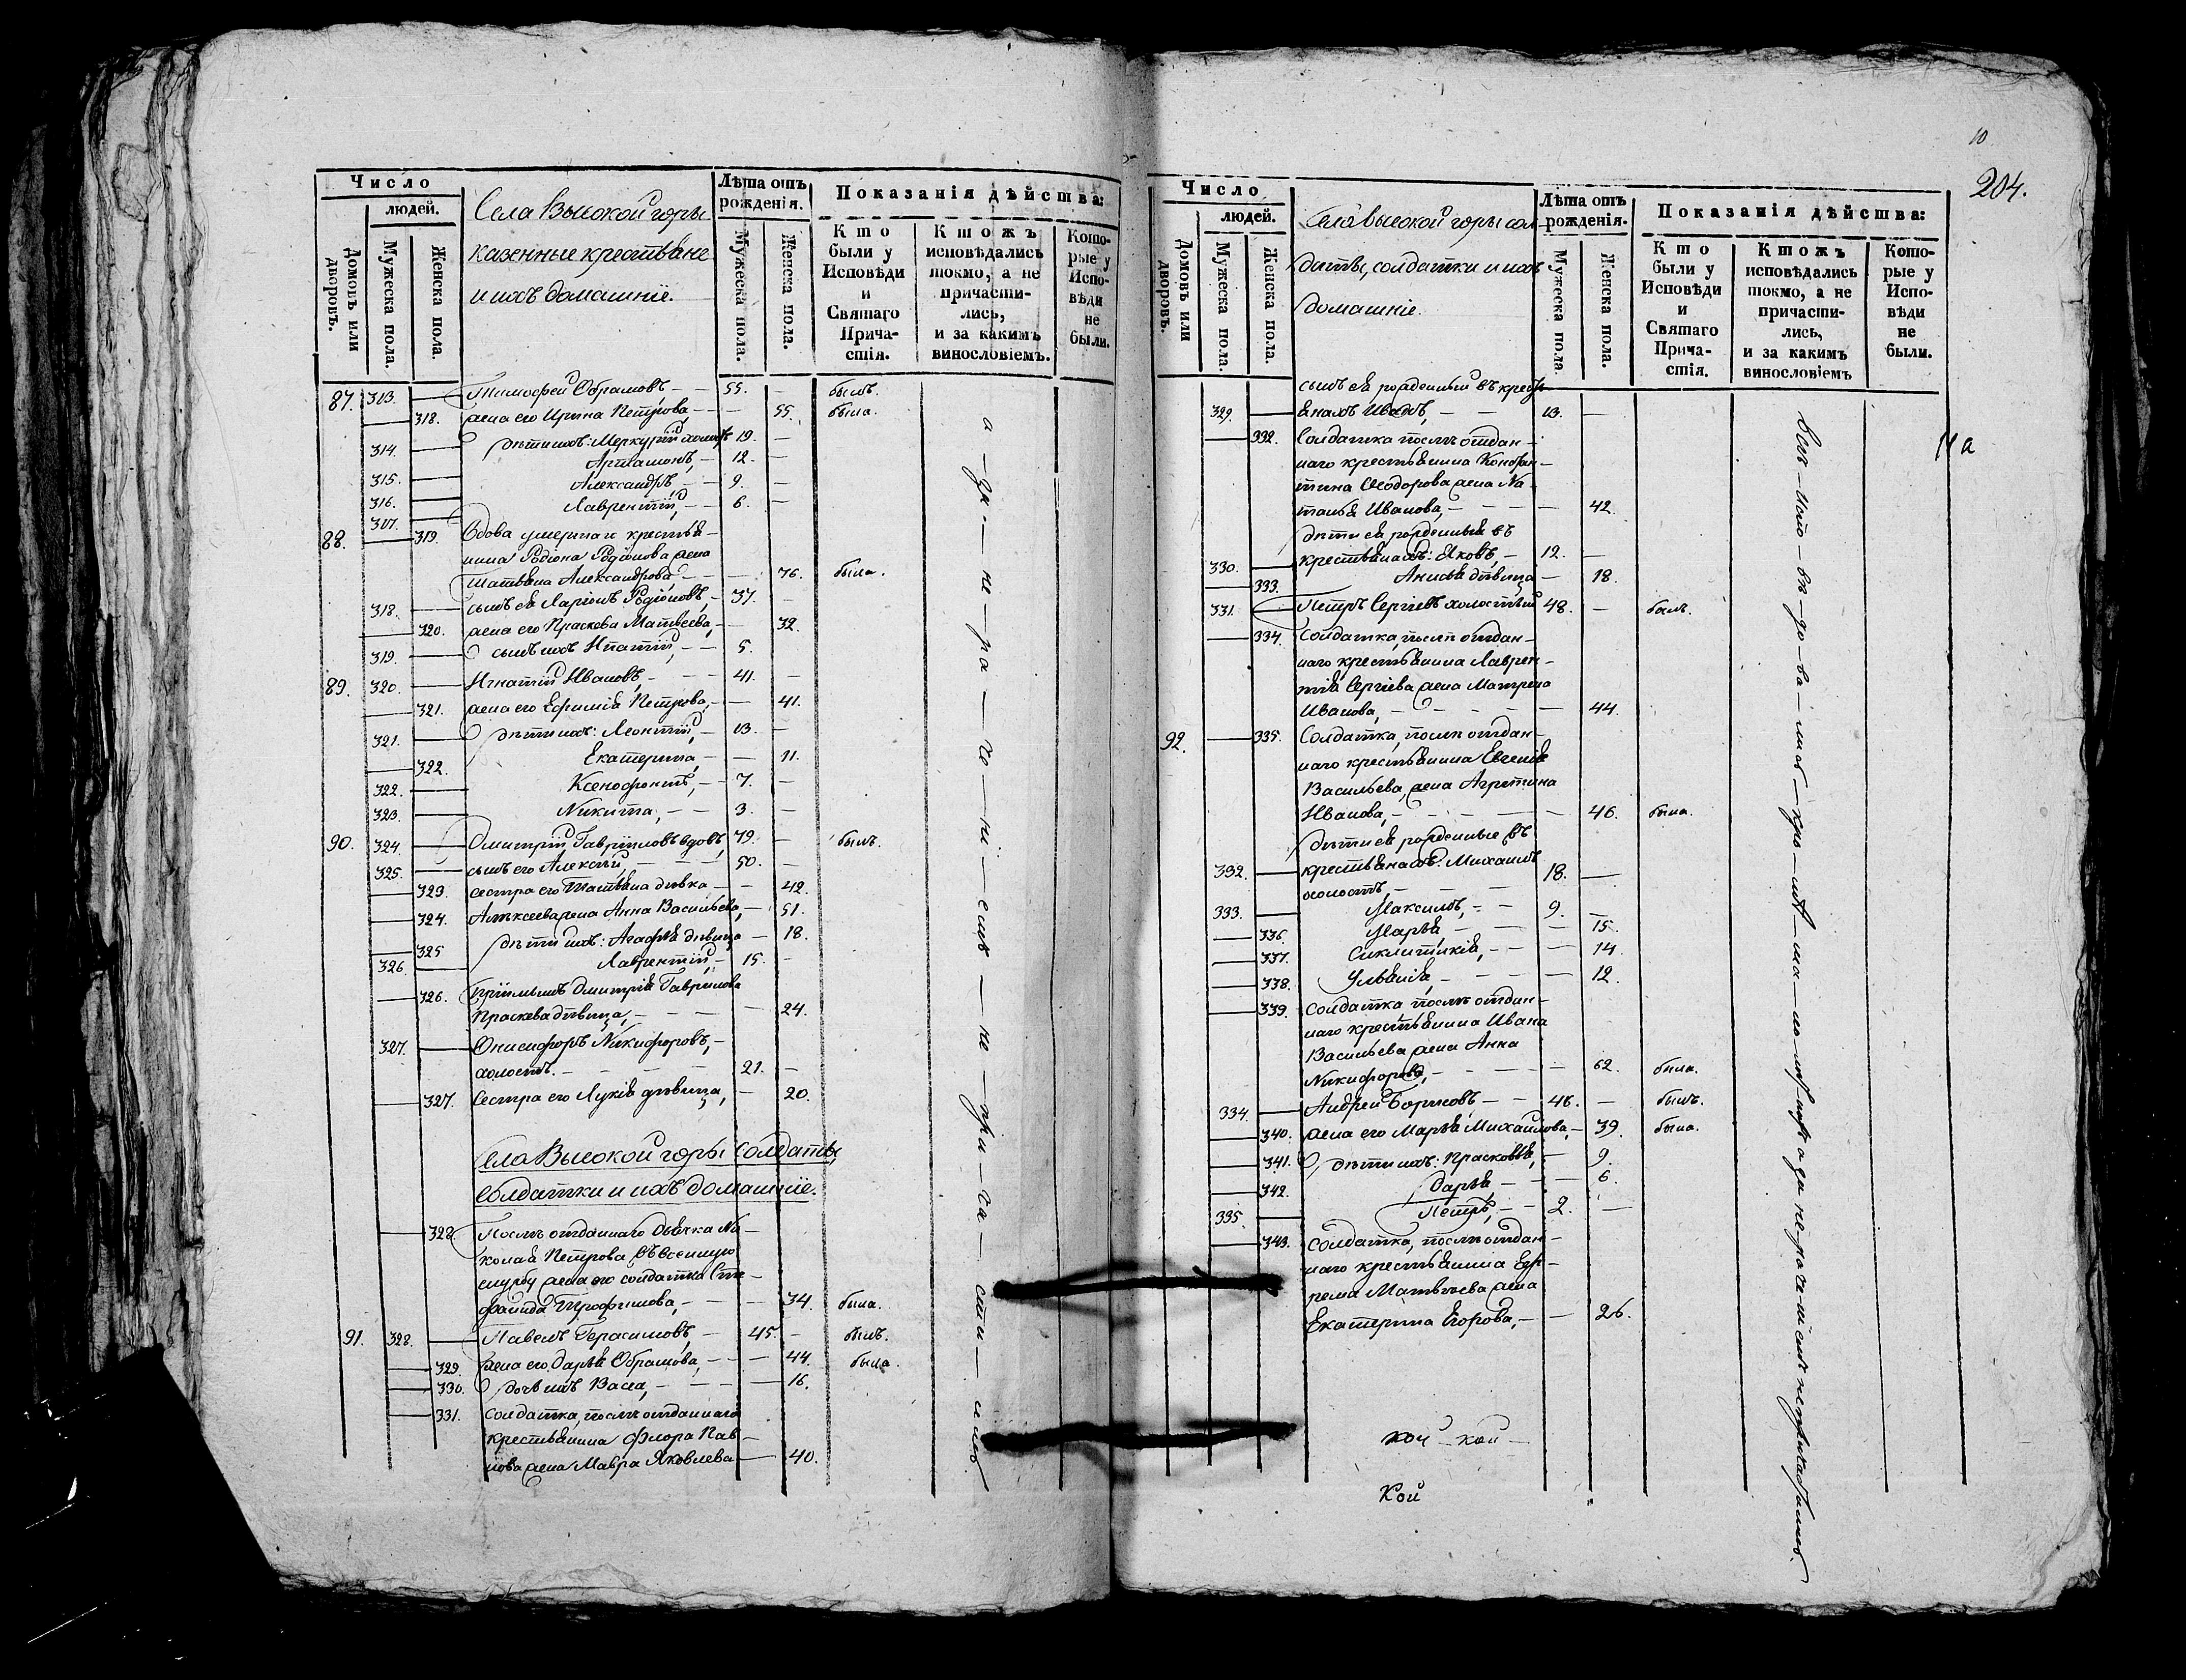 Число
людей.
Домовъ или дворовъ.
Мужеска пола.
Женска пола.
Села Высокой горы
казенные крестьяне
и ихъ домашніе.
Лѣта отъ рожденія.
Мужеска пола.
Женска пола.
Показанія дѣйства:
Кто были у Исповѣди и Святаго Причастія.
Ктожъ исповѣдались токмо, а не причастились, и за какимъ винословіемъ.
Которые у Исповѣди не были.
87. 313. Тимофей Обрамовъ, 55. былъ.
318. жена его Ирина Петрова, 55. была.
314. дѣти ихъ: Меркурій холостъ 19.
315. Артамонъ, 12.
316. Александръ, 9.
317. Лаврентій, 6.
88. 319. Вдова умершаго крестья-
нина Родіона Родіонова жена
Татьяна Александрова, 76. была.
318. сынъ ея Ларіонъ Родіоновъ, 37.
320. жена его Праскева Матвеева, 32.
319. сынъ ихъ Ипатій, 5.
89. 320. Игнатій Ивановъ, 41.
321. жена его Ефимія Петрова, 41.
321. дѣти ихъ: Леонтій, 13.
322. Екатерина, 11.
322. Ксенофонтъ, 7.
323. Никита, 3.
90. 324. Дмитрій Гавриловъ вдовъ, 79. былъ.
325. сынъ его Алексѣй, 50.
323. сестра его Татьяна дѣвка 42.
324. Алексеева жена Анна Васильева, 51.
325 дѣти ихъ: Агафья дѣвица 18.
326. Лаврентій, 15.
326. пріимышъ Дмитрія Гаврилова
Праскева дѣвица, 24.
327. Онисифоръ Никифоровъ,
холостъ. 21.
327. Сестра его Лукія дѣвица, 20.
Села Высокой горы солдаты,
солдатки и ихъ домашніе.
328 Послѣ отданнаго дьячка Ни-
колая Петрова въ военную
службу жена его солдатка Сте-
фанида Трофимова, 34. была.
91. 328. Павелъ Герасимовъ, 45. былъ.
329. жена его Дарья Обрамова, 44. была.
330. дочь ихъ Васса, 16.
331. Солдатка, послѣ отданнаго
крестьянина Флора Пав-
лова жена Мавра Яковлева 40.
а – за – не – ра – че – ні – емъ – не – при – ча – сти – лись
10
204.
11а
Число
людей.
Домовъ или дворовъ.
Мужеска пола.
Женска пола.
Села Высокой горы сол-
даты, солдатки и ихъ
домашніе.
Лѣта отъ рожденія.
Мужеска пола.
Женска пола.
Показанія дѣйства:
Кто были у Исповѣди и Святаго Причастія.
Ктожъ исповѣдались токмо, а не причастились, и за какимъ винословіемъ
Которые у Исповѣди не были.
сынъ ея рожденный въ кресть-
329. янахъ Ивадъ, 13.
332. Солдатка послѣ отдан-
наго крестьянина Констан-
тина Ѳеодорова жена На-
талья Иванова, 42.
дѣти ея рожденныя въ
330. крестьянахъ: Яковъ, 12.
333. Анисья дѣвица 18.
331. Петръ Сергіевъ холостый 48. былъ.
334. Солдатка, послѣ отдан-
наго крестьянина Лаврен-
тія Сергіева жена Матрена
Иванова, 44.
92. 335. Солдатка, послѣ отдан-
наго крестьянина Евгенія
Васильева, жена Агрепина
Иванова, 46. была.
дѣти ея рожденные въ
332. крестьянахъ: Михаилъ
холостъ, 18.
333. Максимъ, 9.
336. Марья, 15.
337. Сиклитикія, 14.
338. Ульянія, 12.
339. Солдатка послѣ отдан-
наго крестьянина Ивана
Васильева жена Анна
Никифорова, 62. была.
334. Андрей Борисовъ 46. былъ.
340. жена его Марья Михайлова, 39. была.
341. дѣти ихъ: Прасковья, 9.
342. Дарья 6.
335. Петръ, 2.
343. Солдатка, послѣ отдан-
наго крестьянина Еф-
рема Матвѣева жена
Екатерина Егорова, 26.
кой – кой
Кой